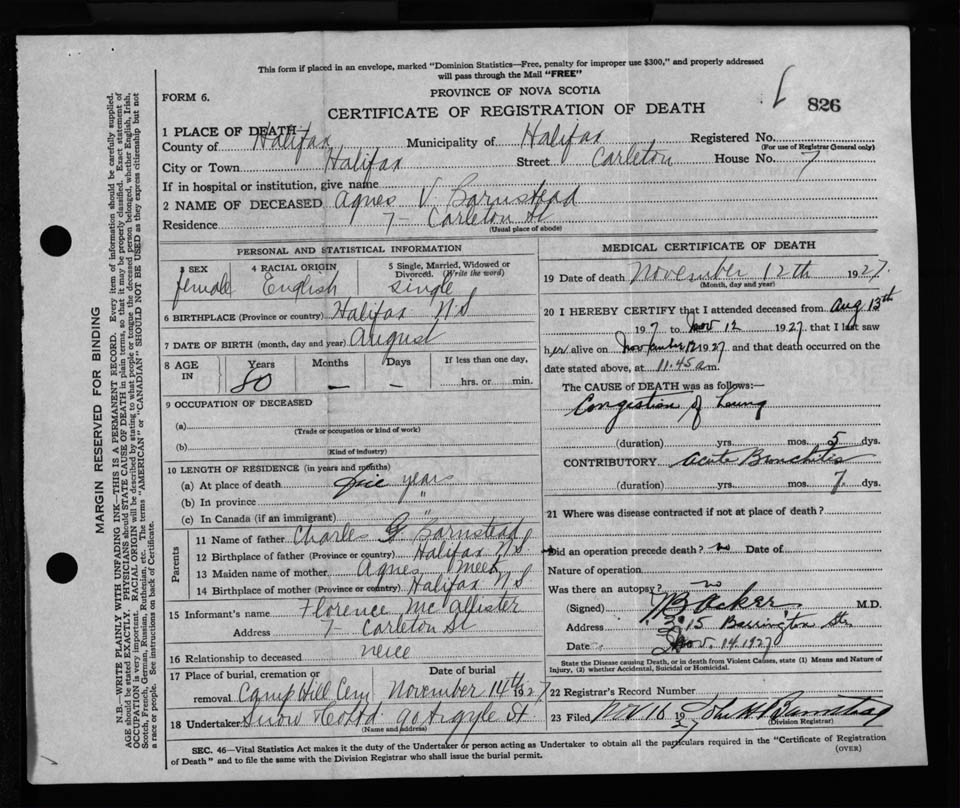 This form if placed in an envelope, marked "Dominion Statistics—Free, penalty for improper use $300," and properly addressed
will pass through the Mail "FREE"
PROVINCE OF NOVA SCOTIA
FORM 6.
CERTIFICATE OF REGISTRATION OF DEATH
826
1 PLACE OF DEATH
County of Halifax Municipality of Halifax Registered No.
(For use of Registrar General only)
City or Town Halifax Street Carleton House No. 7
If in hospital or institution, give name
2 NAME OF DECEASED Agnes V. Barnstead
Residence 7 - Carleton St
(Usual place of abode)
PERSONAL AND STATISTICAL INFORMATION
3 SEX 4 RACIAL ORIGIN 5 Single, Married, Widowed or
Divorced. (Write the word)
female English single
6 BIRTHPLACE (Province or country) Halifax N S
7 DATE OF BIRTH (month, day and year) August
8 AGE IN Years Months Days If less than one day,
80 - - hrs. or min.
9 OCCUPATION OF DECEASED
(a)
(Trade or occupation or kind of work)
(b)
(Kind of industry)
10 LENGTH OF RESIDENCE (in years and months)
(a) At place of death years
(b) In province "
(c) In Canada (if an immigrant) "
Parents
11 Name of father Charles G Barnstead
12 Birthplace of father (Province or country) Halifax N S
13 Maiden name of mother Agnes Meek
14 Birthplace of mother (Province or country) Halifax N S
15 Informant's name Florence McAllister
Address 7 - Carleton St
16 Relationship to deceased neice
17 Place of burial, cremation or Date of burial
removal Camp Hill Cem November 14th 1927
18 Undertaker Snow & Co Ltd 90 Argyle St
(Name and address)
MEDICAL CERTIFICATE OF DEATH
19 Date of death November 12th 1927.
(Month, day and year)
20 I HEREBY CERTIFY that I attended deceased from Aug 13th
1927 to Nov 12 1927, that I last saw
her alive on November 12 1927 and that death occurred on the
date stated above, at 11.45 a m.
The CAUSE of DEATH was as follows:—
Congestion of Lung
(duration) yrs. mos. 5 dys.
CONTRIBUTORY Acute Bronchitis
(duration) yrs. mos. 7 dys.
21 Where was disease contracted if not at place of death?
Did an operation precede death? no Date of
Nature of operation
Was there an autopsy? no
(Signed) Acker M.D.
Address 15 Barrington St.
Date Nov. 14. 1927
State the Disease causing Death, or in death from Violent Causes, state (1) Means and Nature of
Injury, (2) whether Accidental, Suicidal or Homicidal.
22 Registrar's Record Number
23 Filed Nov 16 1927 John H Barnstead
(Division Registrar)
SEC. 46—Vital Statistics Act makes it the duty of the Undertaker or person acting as Undertaker to obtain all the particulars required in the "Certificate of Registration
of Death" and to file the same with the Division Registrar who shall issue the burial permit. (OVER)
MARGIN RESERVED FOR BINDING
N.B.—WRITE PLAINLY WITH UNFADING INK—THIS IS A PERMANENT RECORD. Every item of information should be carefully supplied.
AGE should be stated EXACTLY. PHYSICIANS should STATE CAUSE OF DEATH in plain terms, so that it may be properly classified. Exact statement of
OCCUPATION is very important. RACIAL ORIGIN will be described by stating to what people or tongue the deceased person belonged, whether English, Irish,
Scotch, French, German, Russian, Ruthenian, etc. The terms "AMERICAN" or "CANADIAN" SHOULD NOT BE USED as they express citizenship but not
a race or people. See instructions on back of Certificate.